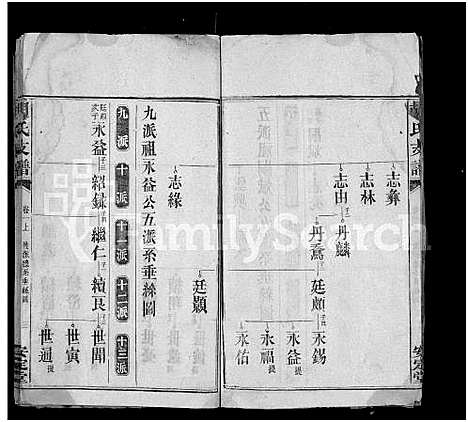 氏支譜
志彝
志林
志由
丹麟
丹鷟
廷頗
永錫
永益 提
永福 提
永佑
志緣
廷顯
九派祖永益公五派系垂絲圖
九派 十派 十一派 十二派 十三派
永益 紹錄 繼仁 續良 世閏
世寅 提
世通 提
氏支譜
卷上
安定堂
FamilySearch